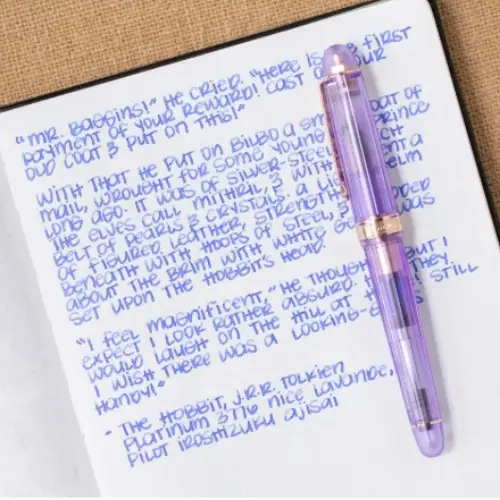 "MR. BAGGINS!" HE CRIED. "HERE IS FIRST
PAYMENT OF YOUR REWARD! CAST OUR
OLD COAT & PUT ON THIS!"
WITH THAT HE PUT ON BILBO A SM COAT OF
MAIL, WROUGHT FOR SOME YOUNG PRINCE
LONG AGO. IT WAS OF SILVER-STEEL CH
THE ELVES CALL MITHRIL, & WITH IT WENT A
BELT OF PEARLS & CRYSTALS. A LI HELM
OF FIGURED LEATHER, STRENGTH
BENEATH WITH HOOPS OF STEEL, DDED
ABOUT THE BRIM WITH WHITE GE WAS
SET UPON THE HOBBIT'S HEAD.
"I FEEL MAGNIFICENT," HE THOUGHT BUT I
EXPECT I LOOK RATHER ABSURD. THEY
WOULD LAUGH ON THE HILL AT STILL
I WISH THERE WAS A LOOKING-GLASS
HANDY!"
- THE HOBBIT, J.R.R. TOLKIEN
PLATINUM 3776 NICE LAVANDE,
PILOT IROSHIZUKU AJISAI